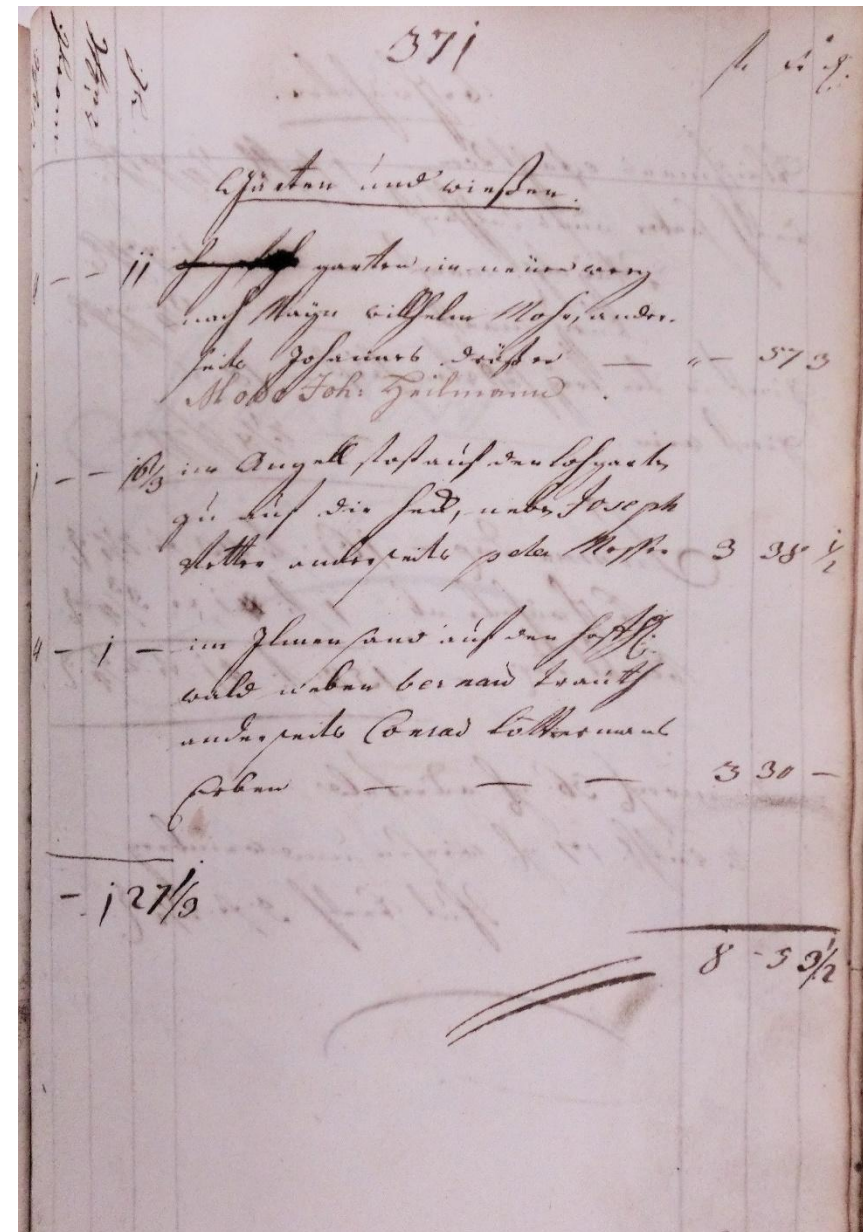 371
fl xr ₰
Gärten und wießen.
11 garten im neüen weeg
nach Mayn Willhelm Mohr, ander-
seits Johannes — " — 57 3
Modo Joh: Heilmann
1 — — 16 1/3 im Angell stost auf den
zu auf die Heck, neben Joseph
Vetter anderseits peter Messer 3 38 1/2
4 — 1 — im Ilmen sand auf den
wald neben bernard trauth
anderseits Conrad Löttermans
Erben — — — 3 30 —
— 1 27 1/3
8 - 5 3 1/2